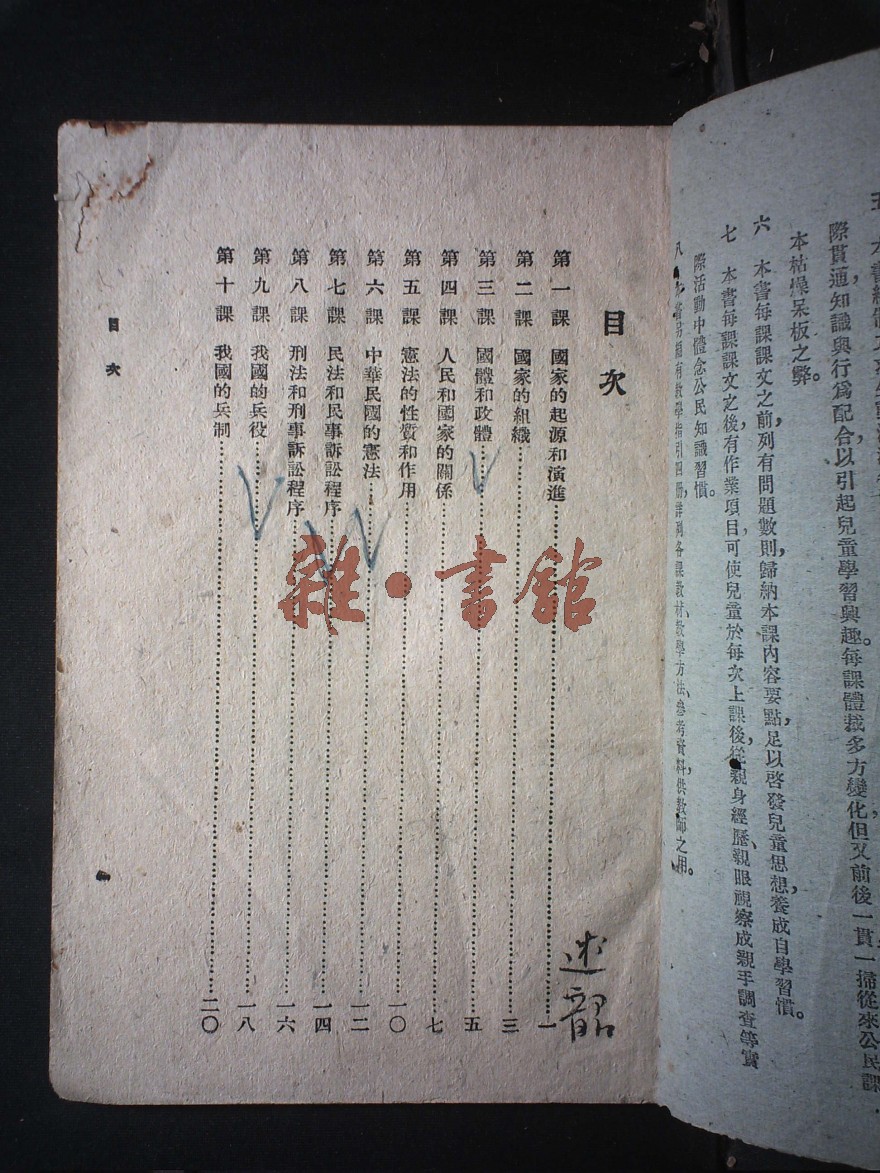 際貫通知識與行爲配合以引起兒童學習興趣。每課體裁多方變化但又前後一貫一掃從來公民課
本枯燥呆板之弊。
六 本書每課課文之前列有問題數則，歸納本課內容要點，足以啓發兒童思想，養成自學習慣。
七 本書每課課文之後有作業項目，可使兒童於每次上課後，從親身經歷、親眼視察或親手調查等實
際活動中體念公民知識習慣。
八 有教學指引四册，詳列各課教材、教學方法、參考資料，供教師之用。
目次
第一課 國家的起源和演進 一
第二課 國家的組織 三
第三課 國體和政體 五
第四課 人民和國家的關係 七
第五課 憲法的性質和作用 一〇
第六課 中華民國的憲法 一二
第七課 民法和民事訴訟程序 一四
第八課 刑法和刑事訴訟程序 一六
第九課 我國的兵役 一八
第十課 我國的兵制 二〇
目次
雜·書館